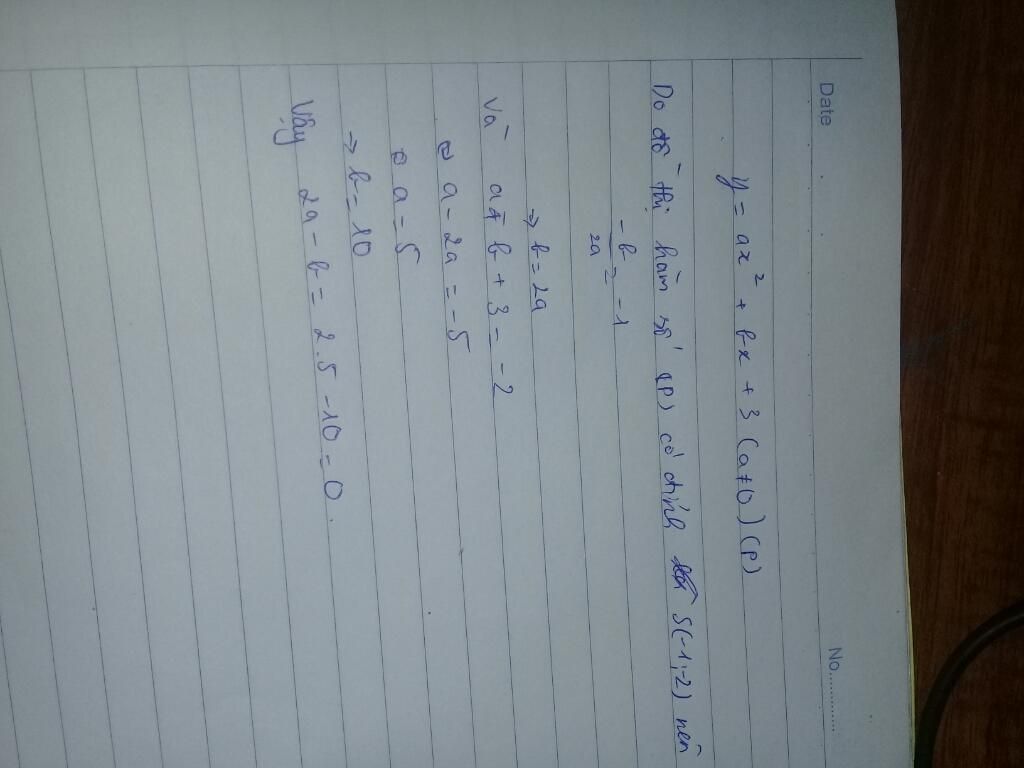 Date No.
y = ax² + bx + 3 (a≠0) (P)
Do đồ thị hàm số (P) có đỉnh S(-1;-2) nên
-b/2a = -1
→ b = 2a
Và a - b + 3 = -2
⇔ a - 2a = -5
⇔ a = 5
→ b = 10
Vậy 2a - b = 2.5 - 10 = 0.